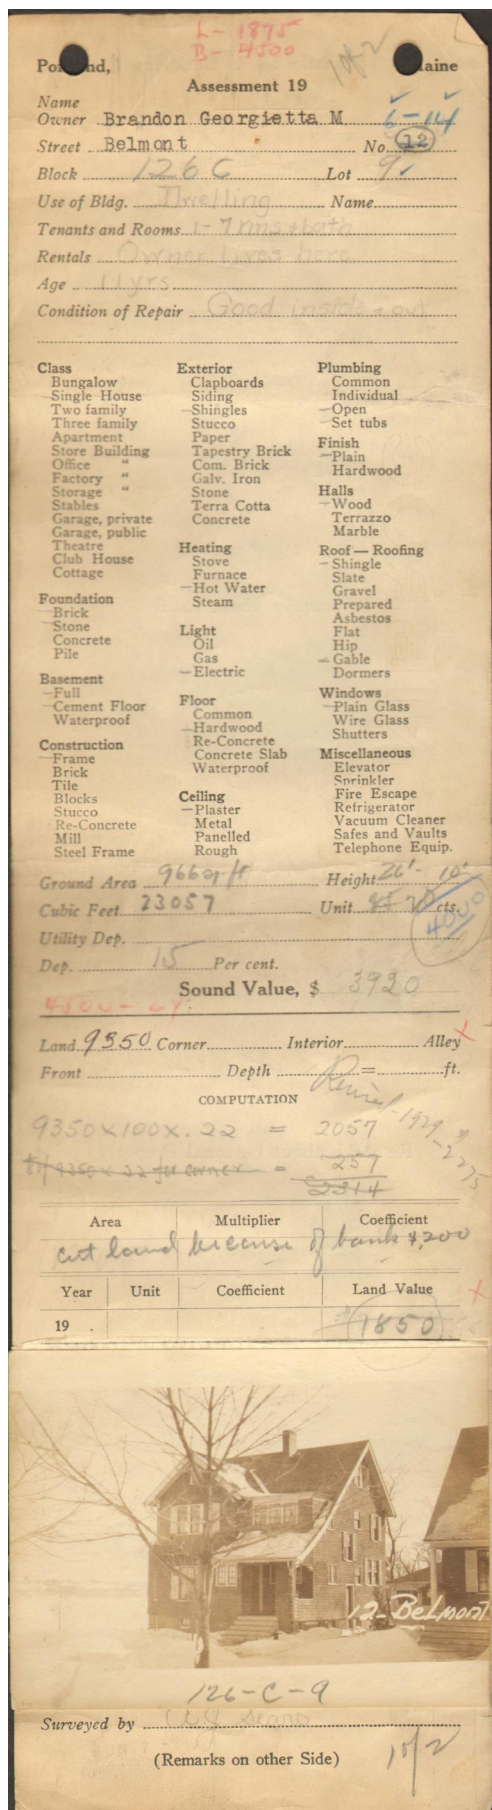 L - 1875
B - 4500
1 of 2
Po nd, aine
Assessment 19
Name
Owner Brandon Georgietta M 6-14
Street Belmont No. 12
Block 126 C Lot 9
Use of Bldg. Dwelling Name
Tenants and Rooms 1-7 rms + bath
Rentals Owner lives here
Age 11 yrs
Condition of Repair Good inside & out
Class
Bungalow
Single House
Two family
Three family
Apartment
Store Building
Office "
Factory "
Storage "
Stables
Garage, private
Garage, public
Theatre
Club House
Cottage
Foundation
Brick
Stone
Concrete
Pile
Basement
Full
Cement Floor
Waterproof
Construction
Frame
Brick
Tile
Blocks
Stucco
Re-Concrete
Mill
Steel Frame
Exterior
Clapboards
Siding
Shingles
Stucco
Paper
Tapestry Brick
Com. Brick
Galv. Iron
Stone
Terra Cotta
Concrete
Heating
Stove
Furnace
Hot Water
Steam
Light
Oil
Gas
Electric
Floor
Common
Hardwood
Re-Concrete
Concrete Slab
Waterproof
Ceiling
Plaster
Metal
Panelled
Rough
Plumbing
Common
Individual
Open
Set tubs
Finish
Plain
Hardwood
Halls
Wood
Terrazzo
Marble
Roof — Roofing
Shingle
Slate
Gravel
Prepared
Asbestos
Flat
Hip
Gable
Dormers
Windows
Plain Glass
Wire Glass
Shutters
Miscellaneous
Elevator
Sprinkler
Fire Escape
Refrigerator
Vacuum Cleaner
Safes and Vaults
Telephone Equip.
Ground Area 966 sq ft Height 26' - 10'
Cubic Feet 23057 Unit 20 cts.
4000
Utility Dep.
Dep. 15 Per cent.
Sound Value, $ 3920
4500 - 29
Land 9350 Corner Interior Alley X
Front Depth = ft.
COMPUTATION
1929
2275
9350 x 100 x .22 = 2057
9350 x 22 for corner = 257
2314
Area Multiplier Coefficient
cut land because of bank $200
Year Unit Coefficient Land Value
19 . 1850
12-Belmont
126-C-9
Surveyed by
(Remarks on other Side)
1 of 2